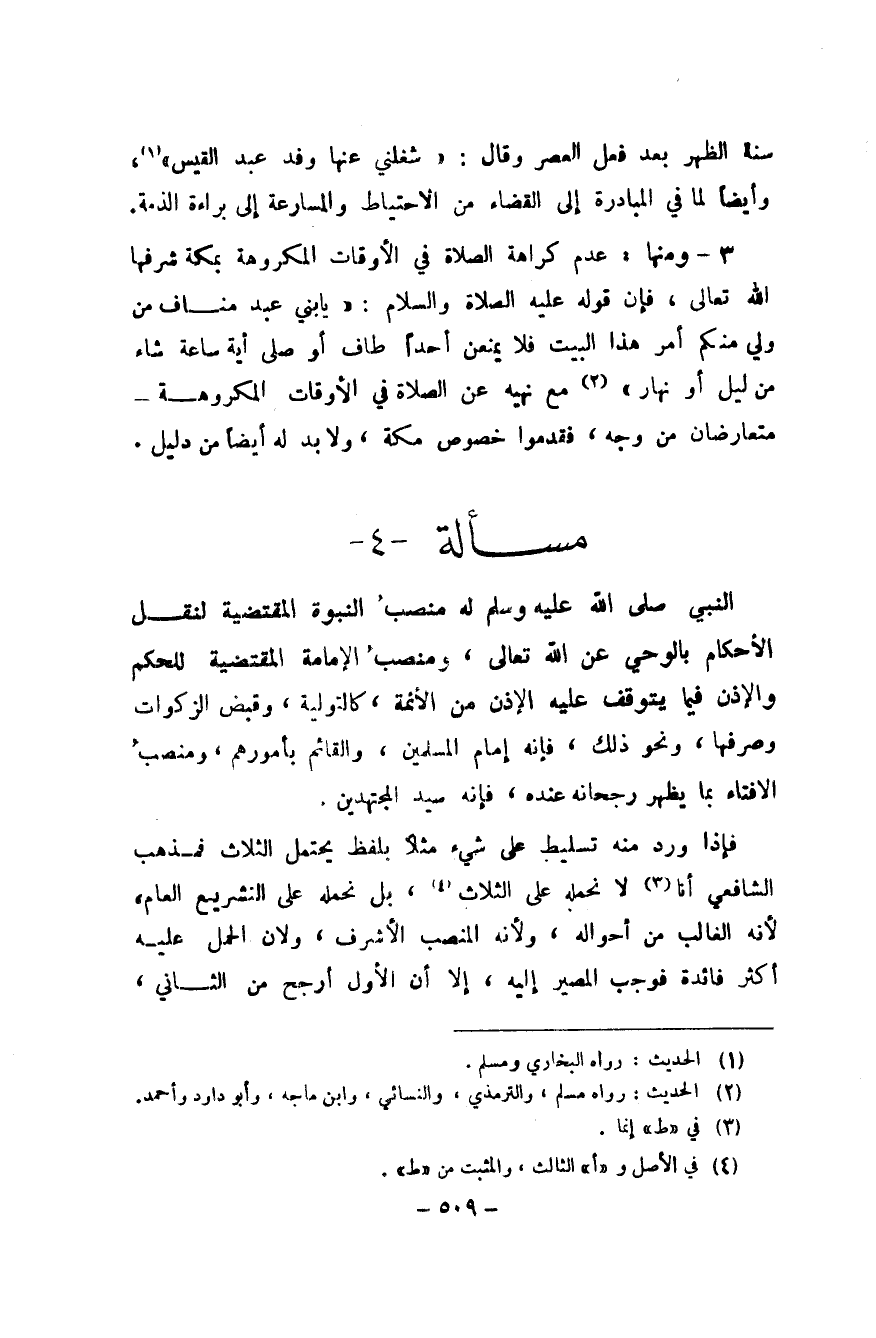 سنة الظهر بعد فعل العصر وقال : « شغلني عنها وفد عبد القيس»(١)،
وأيضاً لما في المبادرة إلى القضاء من الاحتياط والمسارعة إلى براءة الذمة.
٣ – ومنها : عدم كراهة الصلاة في الأوقات المكروهة بمكة شرفها
الله تعالى ، فإن قوله عليه الصلاة والسلام : « يابني عبد منـــاف من
ولي منكم أمر هذا البيت فلا يمنعن أحداً طاف أو صلى أية ساعة شاء
من ليل أو نهار » (٢) مع نهيه عن الصلاة في الأوقات المكروهـــة –
متعارضان من وجه ، فقدموا خصوص مكة ، ولا بد له أيضاً من دليل .
مســـألة -٤-
النبي صلى الله عليه وسلم له منصبُ النبوة المقتضية لنقـــل
الأحكام بالوحي عن الله تعالى ، ومنصبُ الإمامة المقتضية للحكم
والإذن فيما يتوقف عليه الإذن من الأئمة ، كالتولية ، وقبض الزكوات
وصرفها ، ونحو ذلك ، فإنه إمام المسلمين ، والقائم بأمورهم ، ومنصبُ
الافتاء بما يظهر رجحانه عنده ، فإنه سيد المجتهدين .
فإذا ورد منه تسليط على شيء مثلاً بلفظ يحتمل الثلاث فمـذهب
الشافعي أنا (٣) لا نحمله على الثلاث (٤) ، بل نحمله على التشريع العام،
لأنه الغالب من أحواله ، ولأنه المنصب الأشرف ، ولان الحمل عليـه
أكثر فائدة فوجب المصير إليه ، إلا أن الأول أرجح من الثـــاني ،
(١) الحديث : رواه البخاري ومسلم .
(٢) الحديث : رواه مسلم ، والترمذي ، والنسائي ، وابن ماجه ، وأبو داود وأحمد.
(٣) في «ط» إنما .
(٤) في الأصل و «أ» الثالث ، والمثبت من «ط» .
– ٥٠٩ –